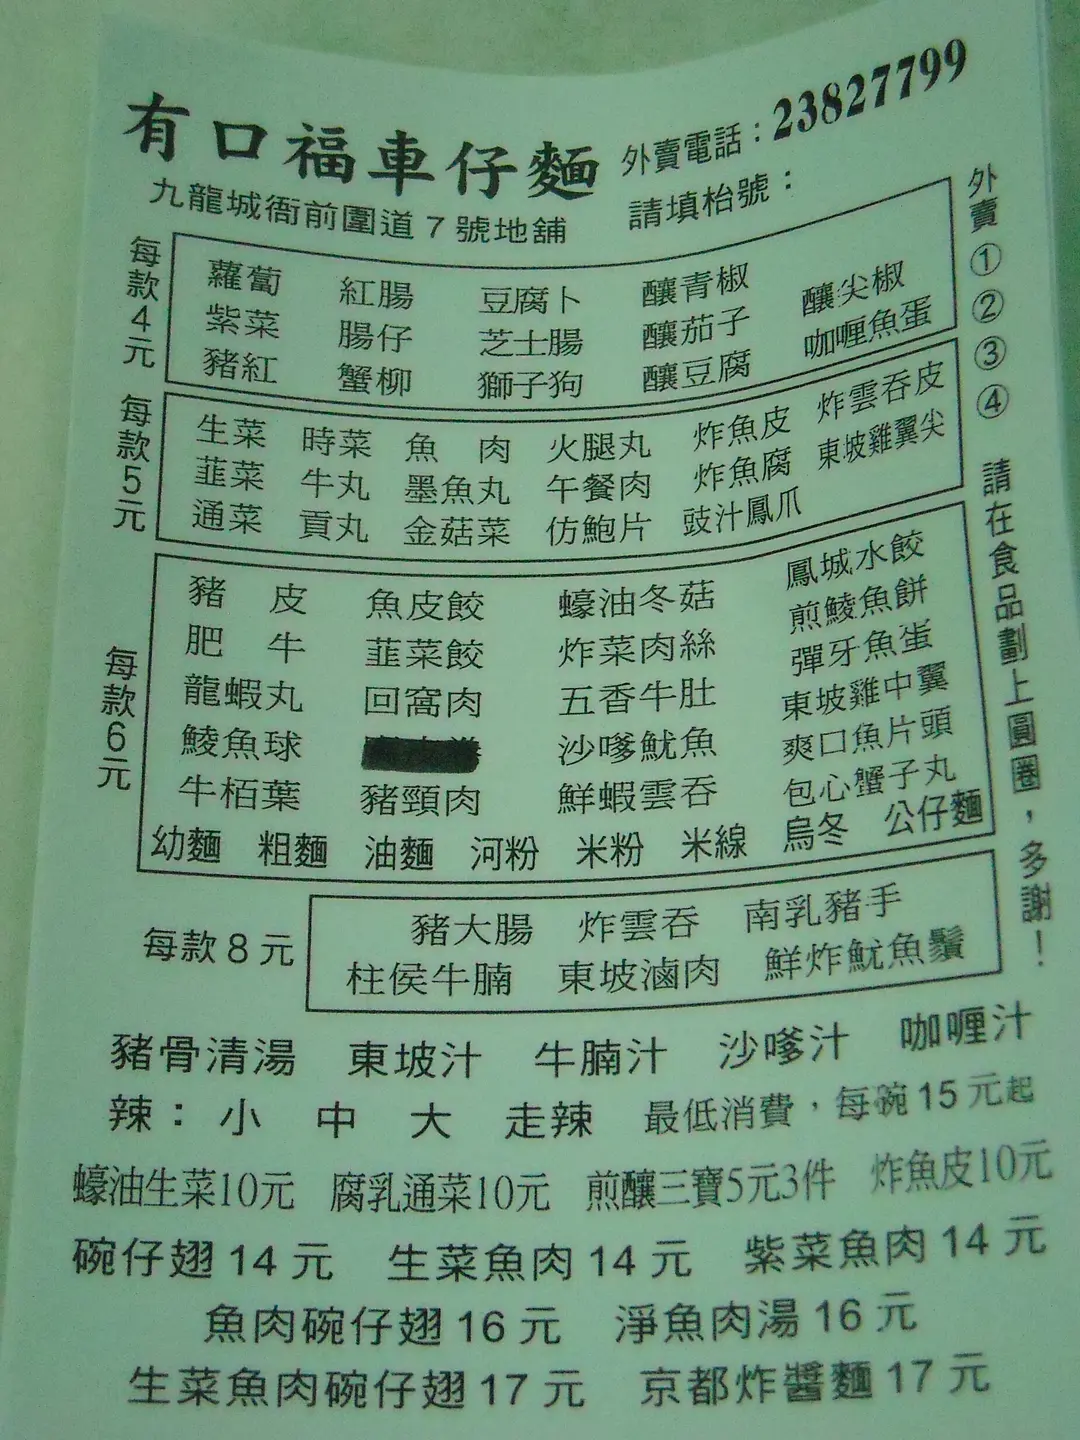 有口福車仔麵
外賣電話：23827799
九龍城衙前圍道7號地舖
請填枱號：
外賣①②③④ 請在食品劃上圓圈，多謝！
每款4元
蘿蔔 紅腸 豆腐卜 釀青椒 釀尖椒
紫菜 腸仔 芝士腸 釀茄子 咖喱魚蛋
豬紅 蟹柳 獅子狗 釀豆腐
每款5元
生菜 時菜 魚肉 火腿丸 炸魚皮 炸雲吞皮
韮菜 牛丸 墨魚丸 午餐肉 炸魚腐 東坡雞翼尖
通菜 貢丸 金菇菜 仿鮑片 豉汁鳳爪
每款6元
豬皮 魚皮餃 蠔油冬菇 鳳城水餃
肥牛 韮菜餃 炸菜肉絲 煎鯪魚餅
龍蝦丸 回窩肉 五香牛肚 彈牙魚蛋
鯪魚球 沙嗲魷魚 東坡雞中翼
牛栢葉 豬頸肉 鮮蝦雲吞 爽口魚片頭
包心蟹子丸
幼麵 粗麵 油麵 河粉 米粉 米線 烏冬 公仔麵
每款8元
豬大腸 炸雲吞 南乳豬手
柱侯牛腩 東坡滷肉 鮮炸魷魚鬚
豬骨清湯 東坡汁 牛腩汁 沙嗲汁 咖喱汁
辣：小 中 大 走辣 最低消費，每碗15元起
蠔油生菜10元 腐乳通菜10元 煎釀三寶5元3件 炸魚皮10元
碗仔翅14元 生菜魚肉14元 紫菜魚肉14元
魚肉碗仔翅16元 淨魚肉湯16元
生菜魚肉碗仔翅17元 京都炸醬麵17元